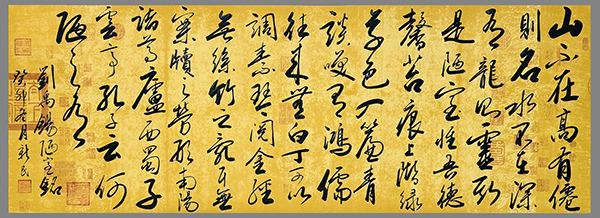 山不在高有僊
則名水不在深
有龍則靈斯
是陋室惟吾德
馨苔痕上階緑
草色入簾青
談笑有鴻儒
往来無白丁可以
調素琴閲金經
無絲竹之亂耳無
案牘之勞形南陽
諸葛廬西蜀子
雲亭孔子云何
陋之有
劉禹錫陋室銘
癸卯